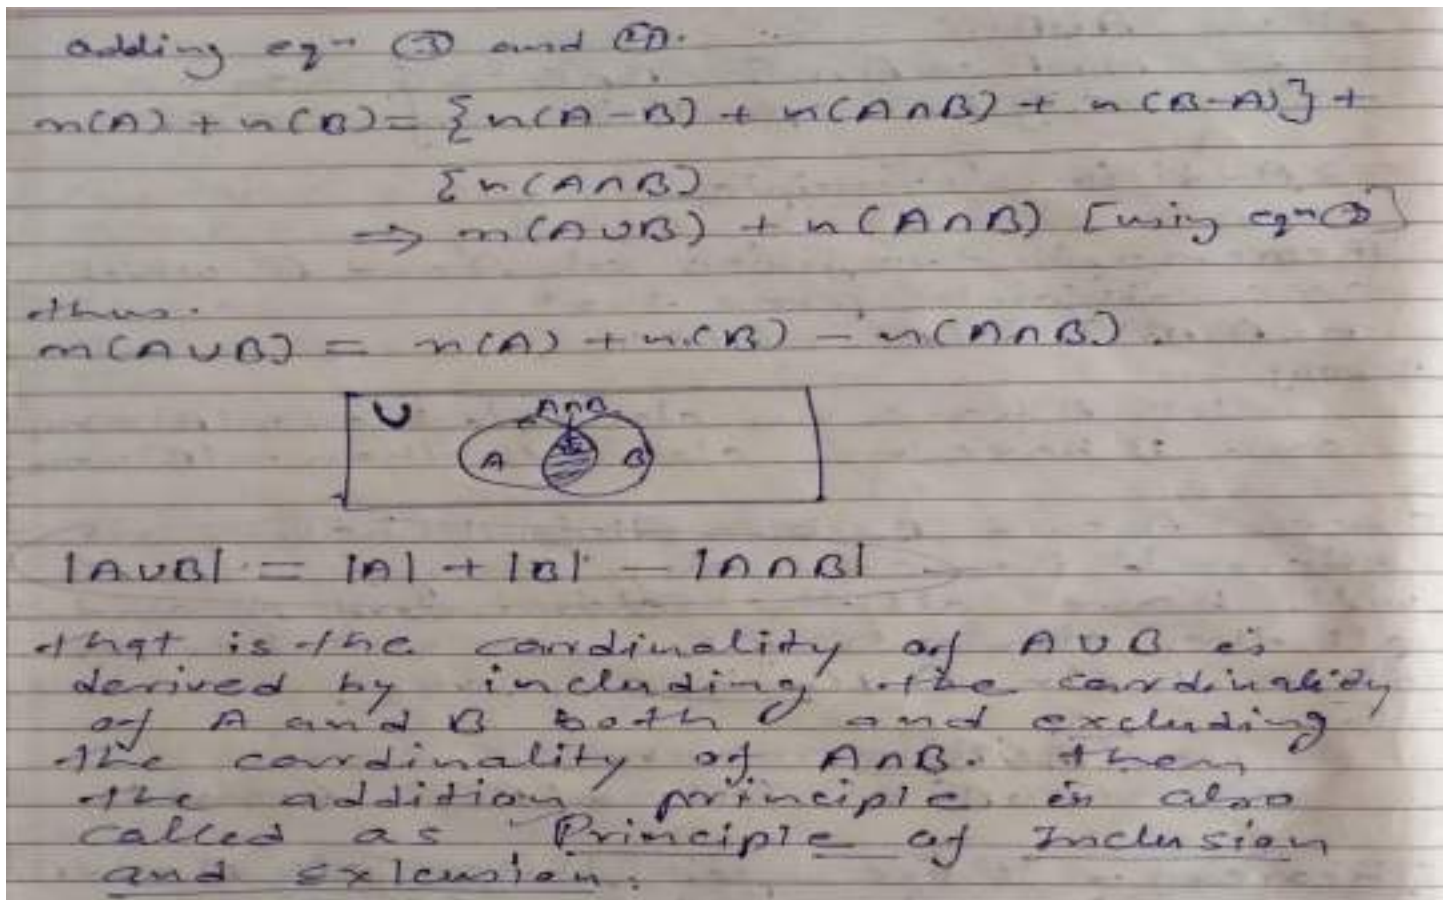 adding eqn ③ and ④.
n(A) + n(B) = {n(A-B) + n(A∩B) + n(B-A)} +
{n(A∩B)
⇒ n(A∪B) + n(A∩B) [using eqn ②]
thus.
n(A∪B) = n(A) + n(B) - n(A∩B).
U
A∩B
A
B
|A∪B| = |A| + |B| - |A∩B|
that is the cardinality of A∪B is
derived by including the cardinality
of A and B both and excluding
the cardinality of A∩B. then
the addition principle is also
called as Principle of Inclusion
and exlcusion.